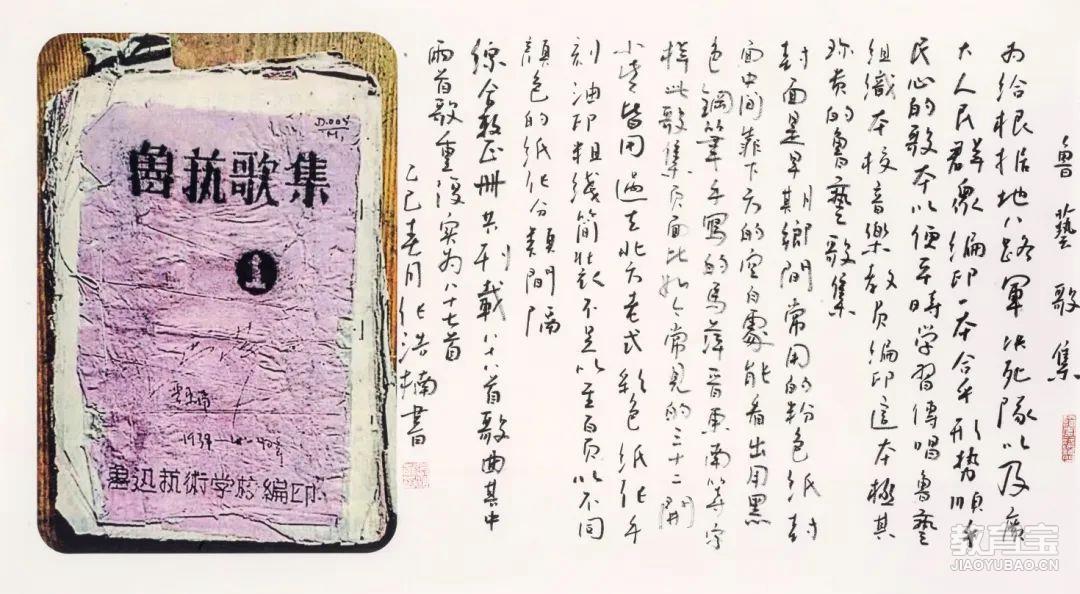 魯藝歌集
为给根据地八路軍决死隊以及廣
大人民群衆编印一本合乎形势順乎
民心的歌本以便平時学習傳唱魯藝
组織本校音樂教员编印這本極其
珍贵的魯藝歌集
封面是早期鄉間常用的粉色纸封
面中间靠下方的空白處能看出用黑
色鋼筆手寫的馬萍晋東南等字
樣此歌集頁面比如今常見的三十二開
小些皆用過去北方老式彩色纸
刻油印粗线简 不足以至百頁以不同
颜色的纸 分類間隔
综合 册共刊載八十八首歌曲其中
两首歌重複实为八十七首
乙巳春月 浩楠書
D.004
M1
魯芸歌集
1
1939
魯迅芸術学校編印
教育宝
JIAOYUBAO.CN